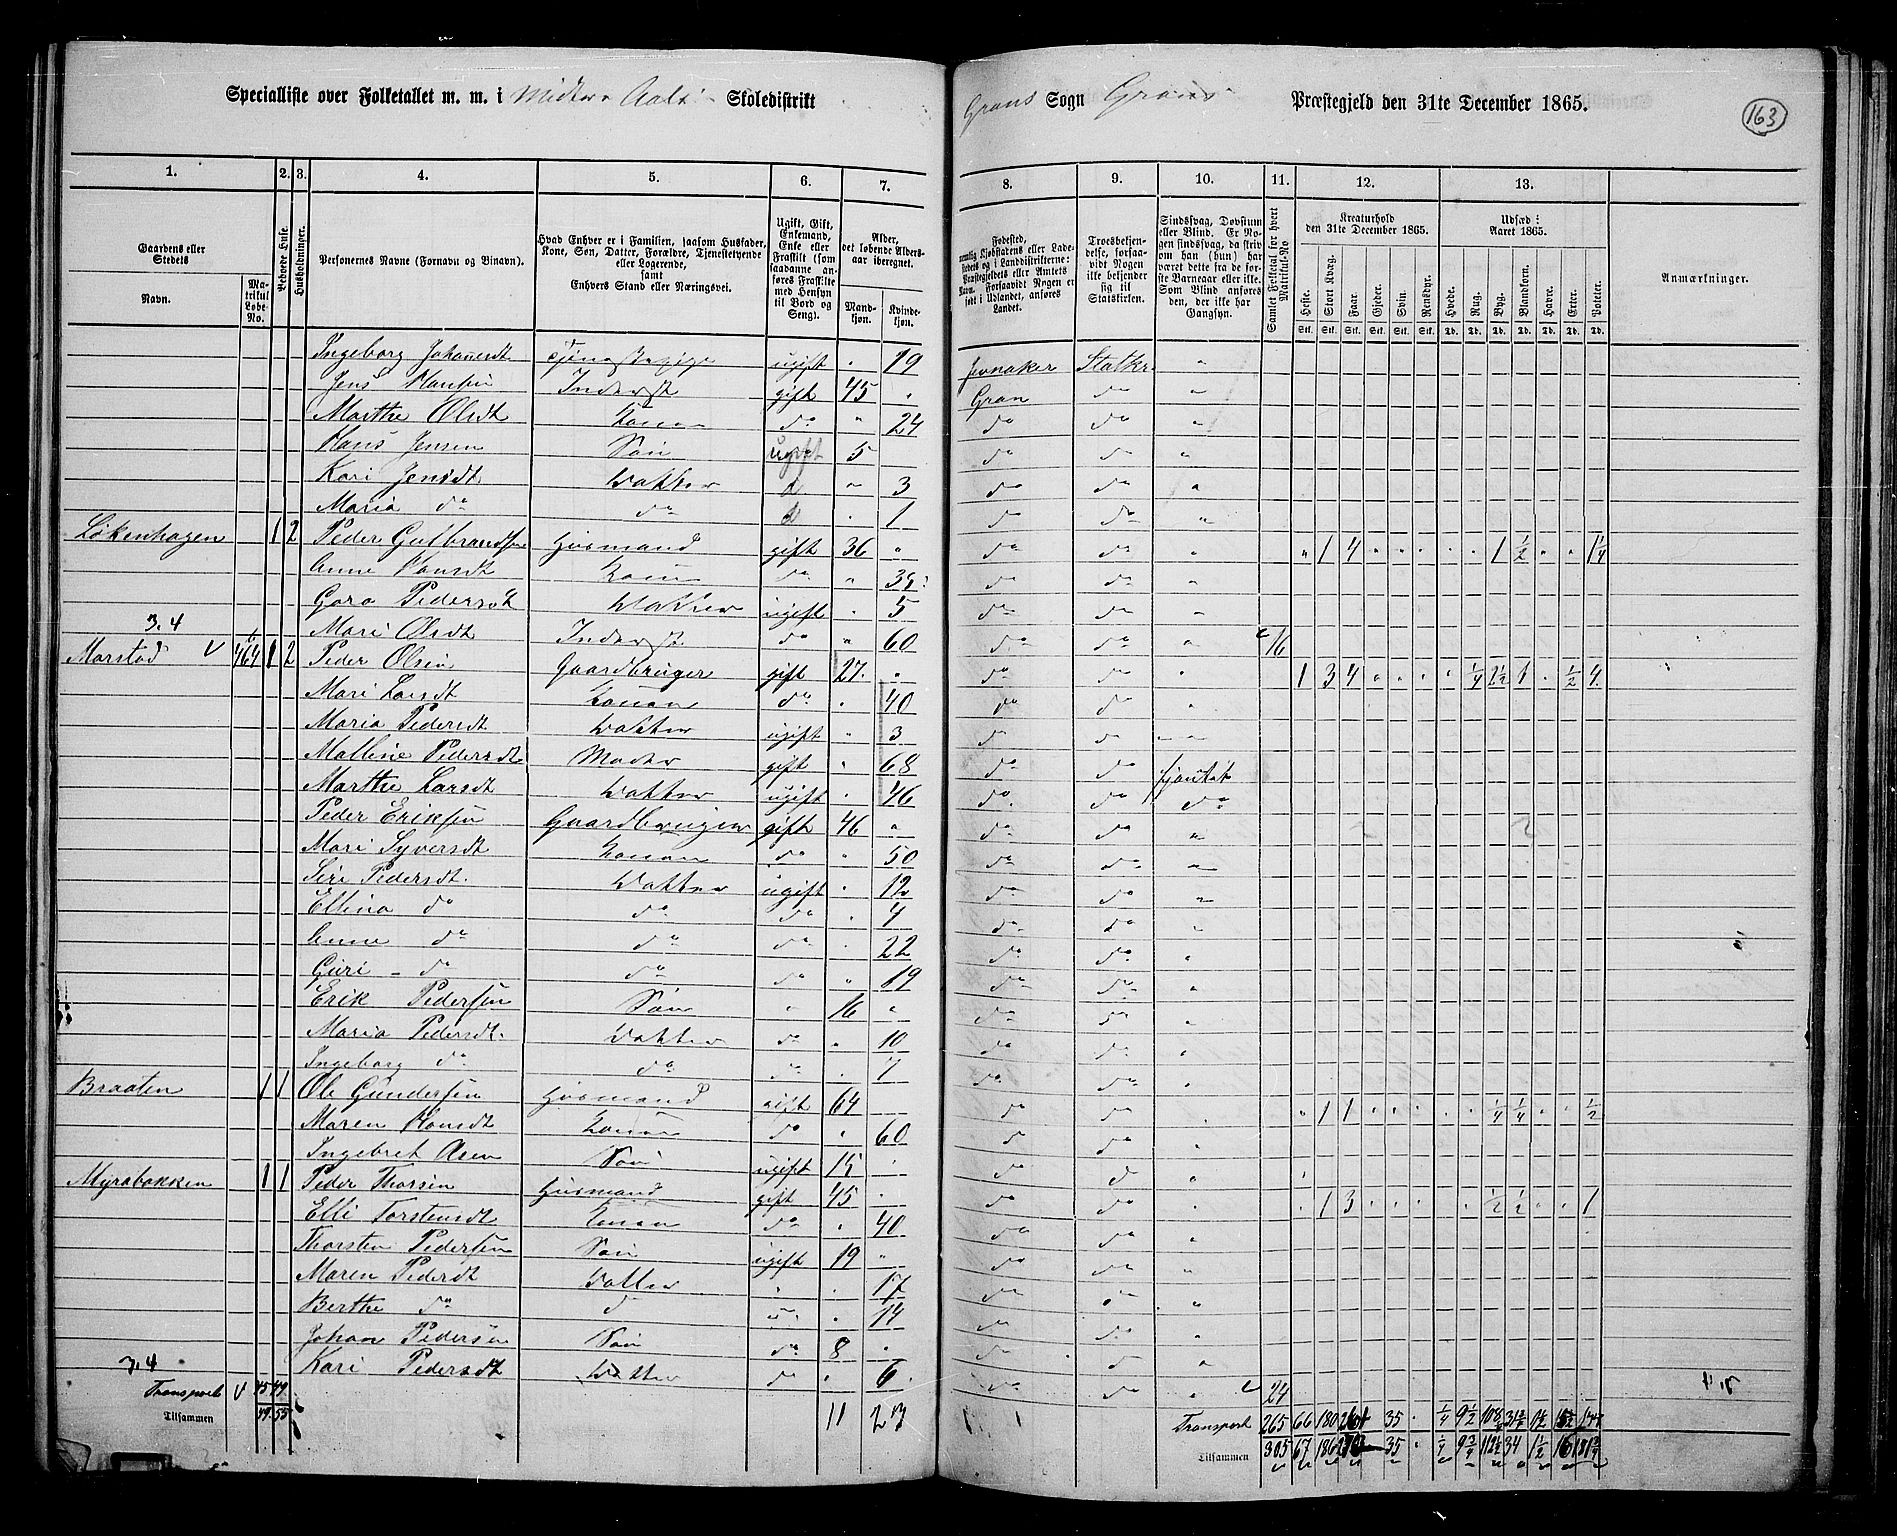 Specialliste over Folketallet m. m. i Midtre Aals Skoledistrikt Grans Sogn Grans Præstegjeld den 31te December 1865. 163
1. 2. 3. 4. 5. 6. 7. 8. 9. 10. 11. 12. 13.
Gaardens eller Stedets Navn. Matrikul Løbe-No. Beboede Huse. Husholdninger. Personernes Navne (Fornavn og Binavn).
Hvad Enhver er i Familien, saasom Husfader, Kone, Søn, Datter, Forældre, Tjenestetyende eller Logerende, samt Enhvers Stand eller Næringsvei.
Ugift, Gift, Enkemand, Enke eller Fraskilt (som saadanne anføres Fraskilte med Hensyn til Bord og Seng).
Alder, det løbende Alders-aar iberegnet. Mand-kjøn. Kvinde-kjøn.
Fødested,
Troesbekjendelse, forsaavidt Nogen ikke bekjender sig til Statskirken.
Sindssvag, Døvstum eller Blind. Er Nogen sindssvag, da skriv om han (hun) har været dette fra de første Barneaar eller ikke. Som Blind anføres den, der ikke har Gangsyn.
Samlet Folketal for hvert Matrikul-No
Kreaturhold den 31te December 1865. Heste. Stort Kvæg. Faar. Gjeder. Svin. Rensdyr.
Udsæd i Aaret 1865. Hvede. Rug. Byg. Blandkorn. Havre. Erter. Poteter.
Anmærkninger.
Ingeborg Johannesdt ugift " 19 Jevnaker Statkr "
Jens Hansen Inderst gift 45 " Gran do "
Marthe Olsdt Konen do " 24 do do "
Hans Jensen Søn ugift 5 do do "
Kari Jensdt Datter d " 3 do do "
Maria do do d " 1 do do "
Løkenhagen 1 2 Peder Gulbrandsen Huusmand gift 36 " do do " " 1 4 " " " " " 1 1/2 " " 1 1/4
Anne Hansdt Konen do " do do "
Goro Pedersdt Datter ugift " 5 do do "
3.4 Mari Olsdt Inderst do " 60 do do " 16
Morstad V 464 1 2 Peder Olsen Gaardbruger gift 27 " do do " 1 3 4 " " " " 1/4 2 1/2 1 " 1/2 4
Mari Larsdt Konen do " 40 do do "
Maria Pedersdt Datter ugift " 3 do do "
Mallene Pedersdt Moder gift " 68 do do
Marthe Larsdt Datter ugift " 46 do do do
Peder Eriksen Gaardbruger gift 46 " do do "
Mari Syversdt Konen do " 50 do do "
Siri Pedersdt Datter ugift " 12 do do "
Ellina do do do " 4 do do
Anne do do do " 22 do do "
Guri do do do " 19 do do "
Erik Pedersen Søn " 16 " do do "
Maria Pedersdt Datter do " 10 do do "
Ingeborg do do do " 7 do do "
Braaten 1 1 Ole Gundersen Huusmand gift 64 do do " " 1 1 " " " " " 1/4 1/4 " " 1/2
Maren Hansdt Konen do " 60 do do "
Ingebret Søn ugift 15 " do do "
Myrabakken 1 1 Peder Thorsen Huusmand gift 45 " do do " " 1 3 " " " " " 1/2 1/2 " " 1
Elli Torstensdt Konen do " 40 do do "
Thorsten Pedersen Søn ugift 19 " do do "
Maren Pedersdt Datter " " 17 do do "
Berthe do d " 14 do do "
Johan Pedersen Søn do 8 " do do "
3.4 Kari Pedersdt Datter do " 6 do do " 24
Transport V Transport 265 66 180 35
Tilsammen 49 55 11 27 Tilsammen 305 67 186 35 1/4 9 3/4 34 1 1/2 16